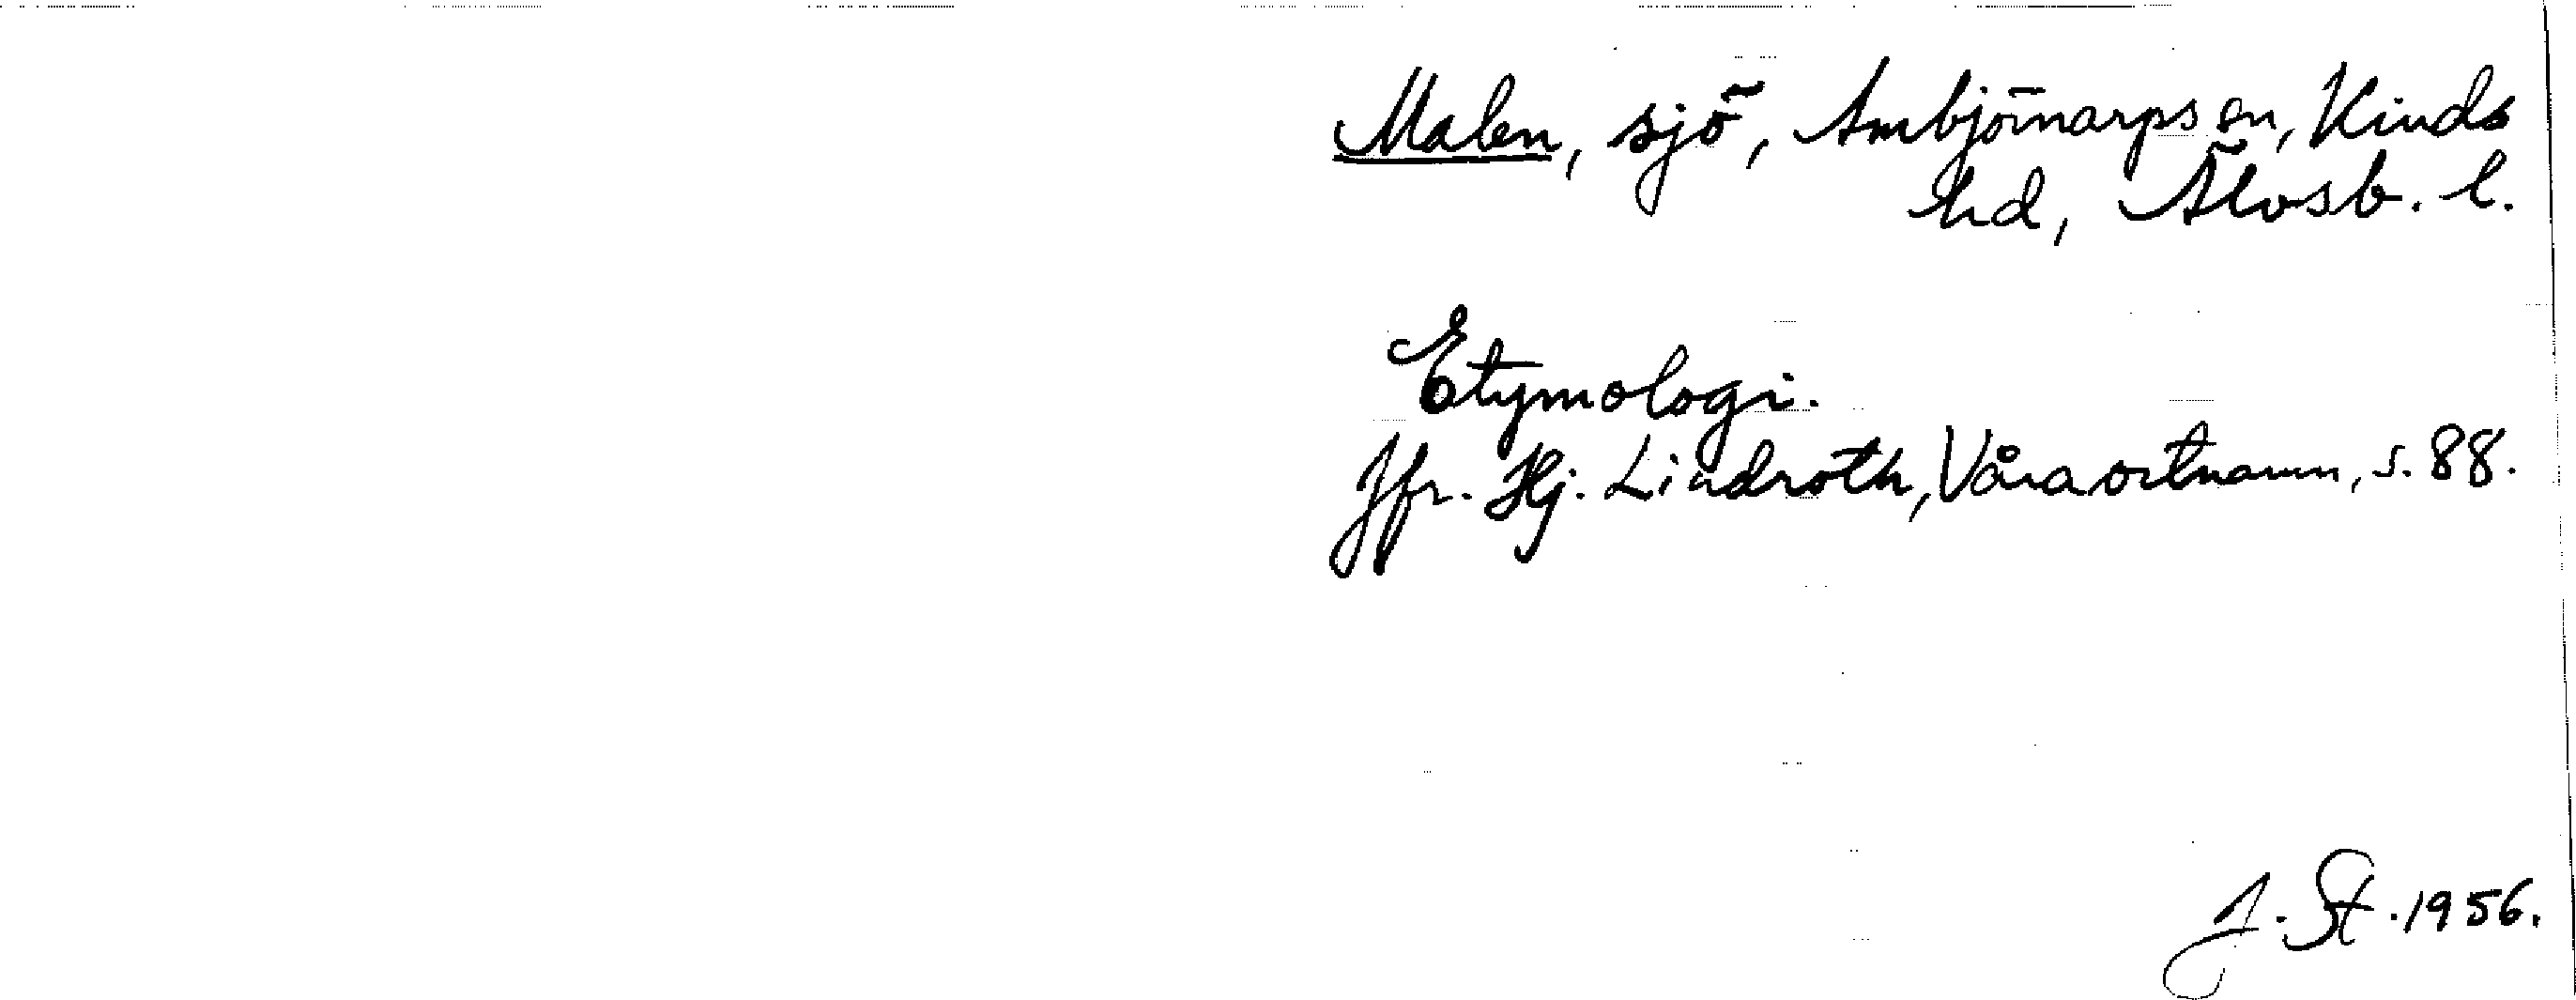 Malen, sjö, Ambjörnarps sn, Kinds
hd, Älvsb. l.
Etymologi.
Jfr. Hj. Lindroth, Våra ortnamn, s. 88.
J. St. 1956.